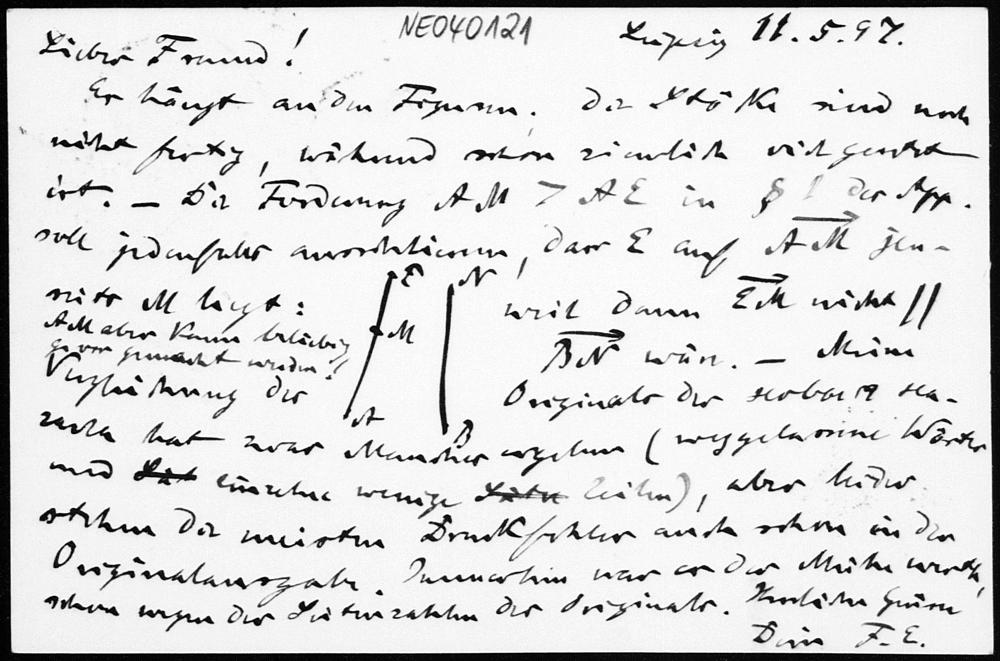 NE040121
Leipzig 11.5.97.
Lieber Freund!
Es hängt an den Figuren. Die Stöcke sind noch
nicht fertig, während schon ziemlich viel gesetzt
ist. — Die Forderung AM > AE in § 1 des App.
soll jedenfalls ausschliessen, dass E auf AM jen-
seits M liegt:
AM aber kann beliebig
gross gemacht werden!
E
M
A
N
B
weil dann EM nicht //
BN wäre. — Meine
Vergleichung des
Originals der
hat zwar Manches ergeben (weggelassene Wörter
und einzelne wenige Zeilen), aber leider
stehen die meisten Druckfehler auch schon in der
Originalausgabe. Immerhin war es der Mühe werth,
schon wegen der Seitenzahlen des Originals. Herzliche Grüsse
Dein F. E.